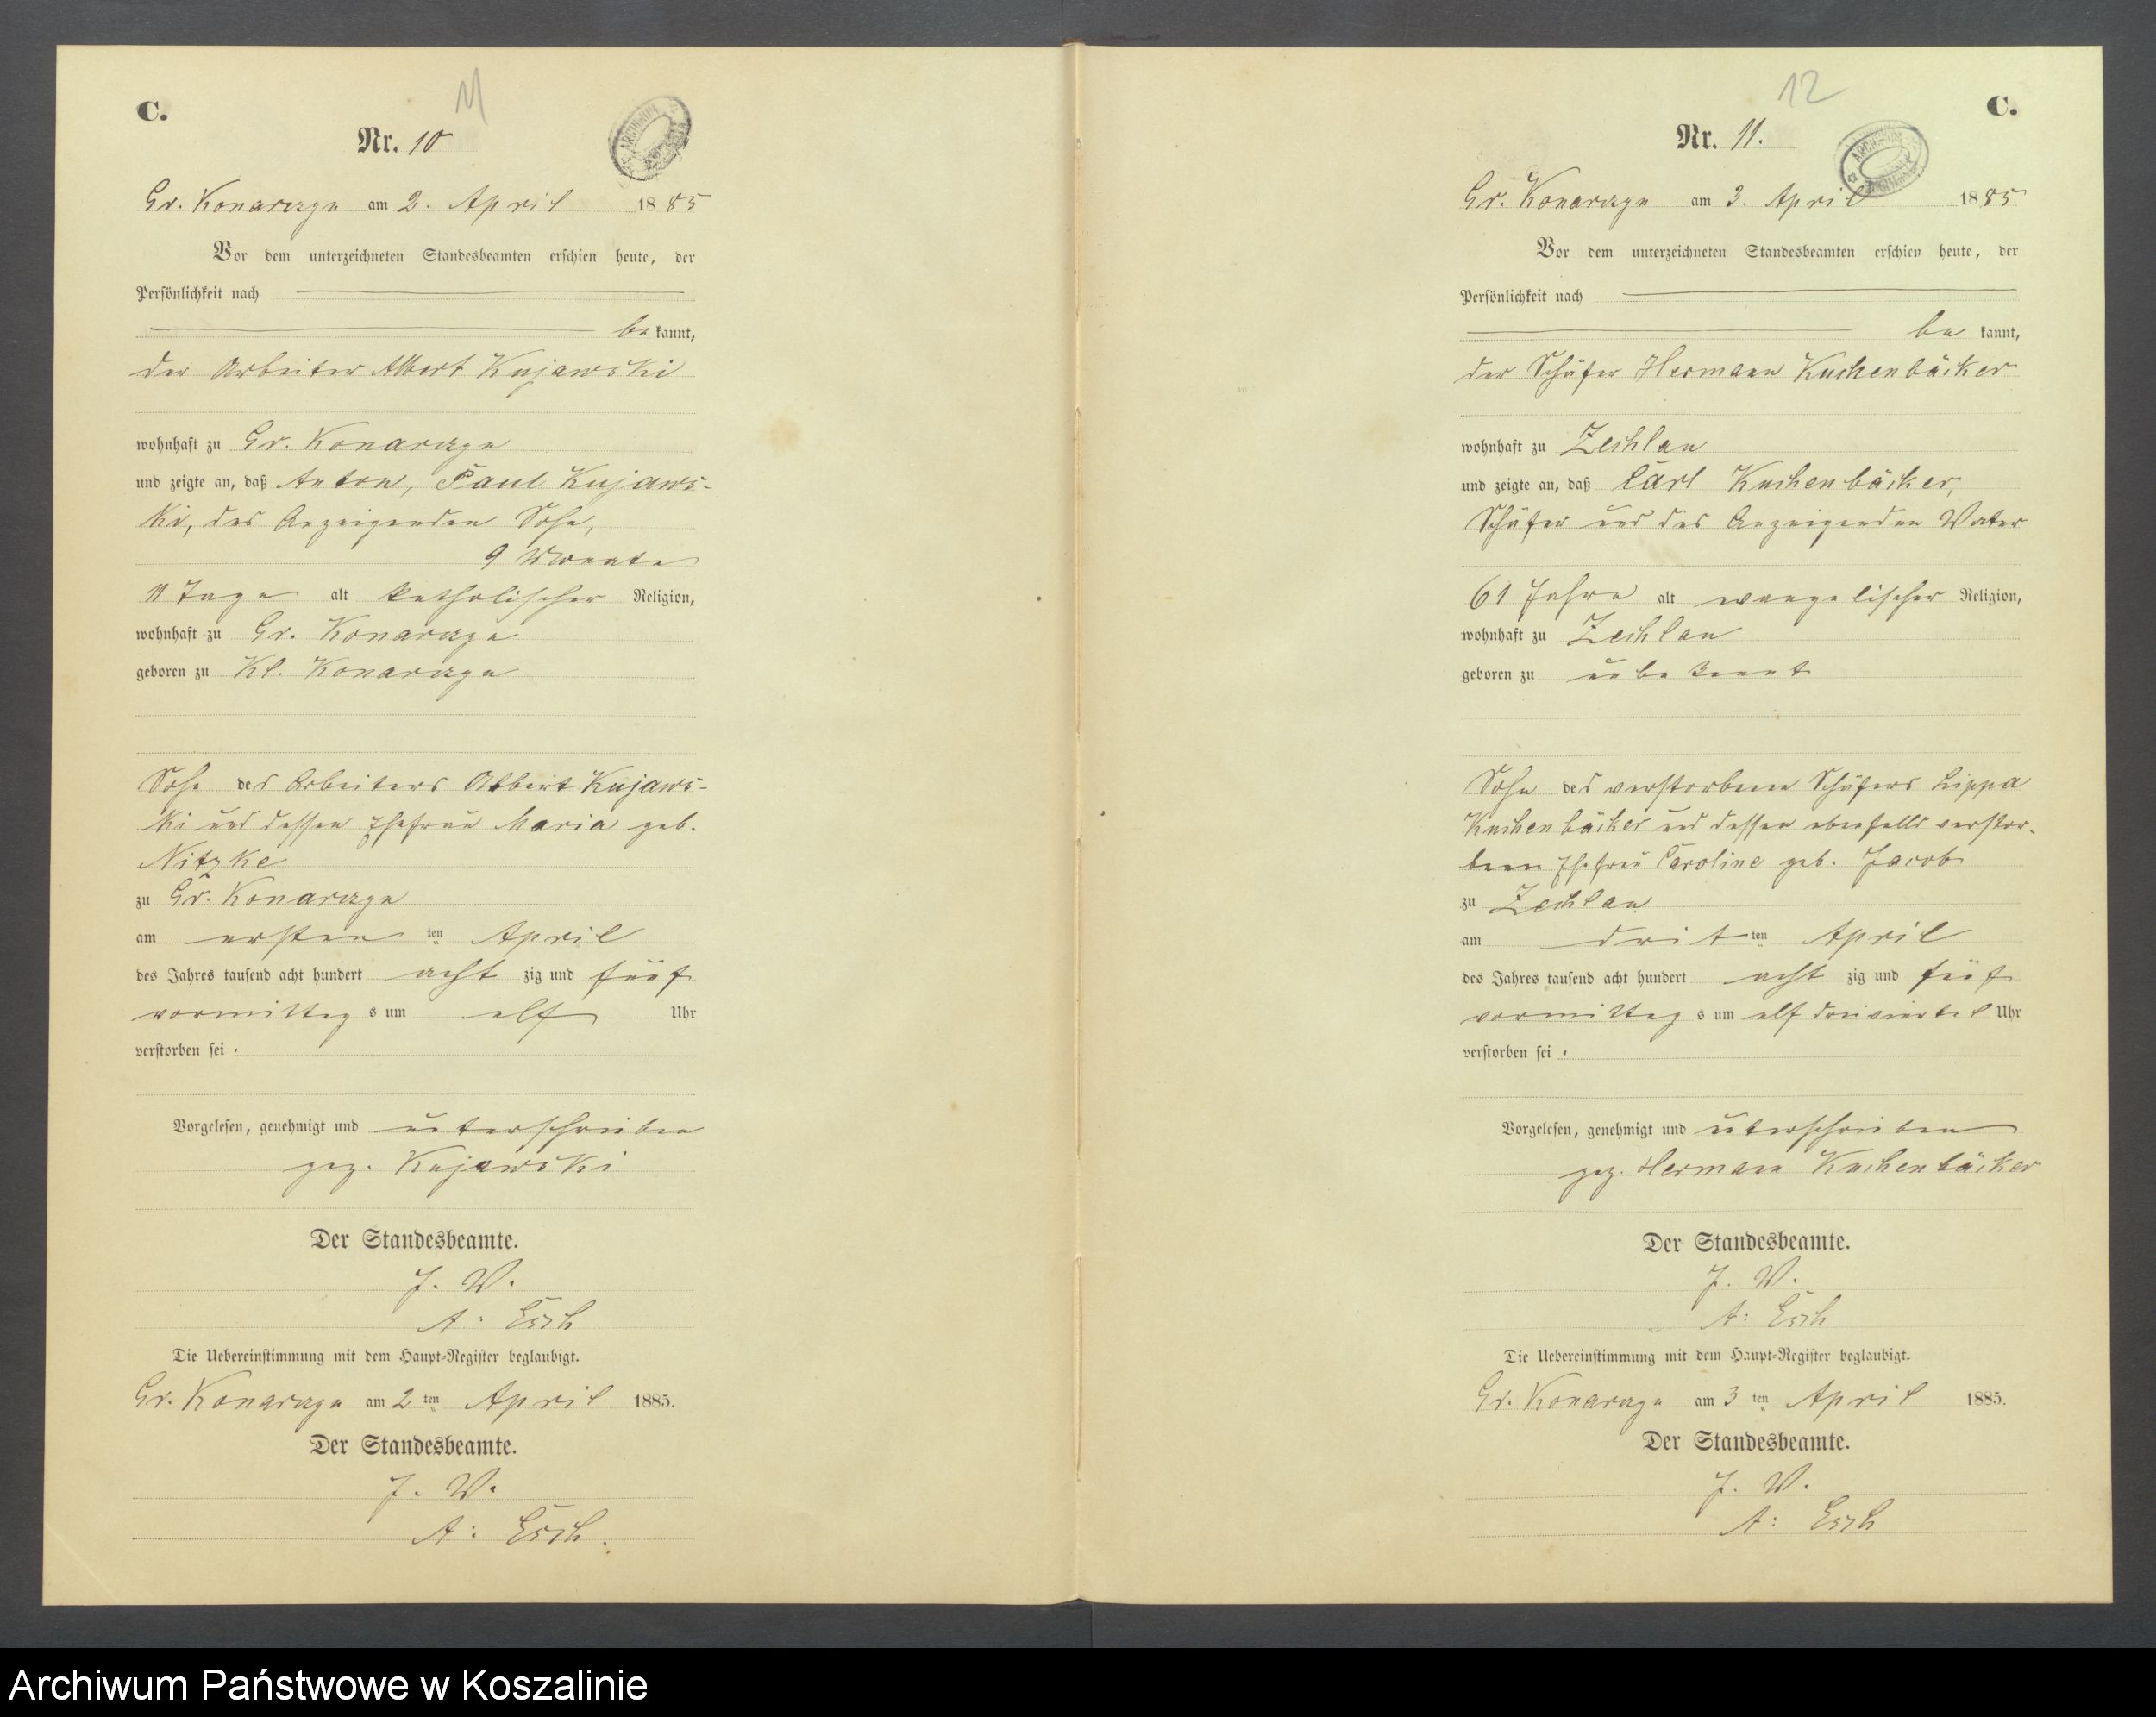 11
C.
Nr. 10
ARCHIWUM
Gr. Konarczyn am 2. April 1885
Vor dem unterzeichneten Standesbeamten erschien heute, der
Persönlichkeit nach
be kannt,
der Arbeiter Albert Kujawski
wohnhaft zu Gr. Konarczyn
und zeigte an, daß Anton, Paul Kujaws-
ki, des Anzeigenden Sohn,
9 Monate
11 Tage alt katholischer Religion,
wohnhaft zu Gr. Konarczyn
geboren zu Kl. Konarczyn
Sohn des Arbeiters Albert Kujaws-
ki und dessen Ehefrau Maria geb.
Nitzke
zu Gr. Konarczyn
am ersten ten April
des Jahres tausend acht hundert acht zig und fünf
vormittag s um elf Uhr
verstorben sei .
Vorgelesen, genehmigt und unterschrieben
gez. Kujawski
Der Standesbeamte.
J. V.
A: Esch
Die Uebereinstimmung mit dem Haupt-Register beglaubigt.
Gr. Konarczyn am 2 ten April 1885.
Der Standesbeamte.
J. V.
A: Esch.
12
C.
Nr. 11.
ARCHIWUM
Gr. Konarczyn am 3. April 1885
Vor dem unterzeichneten Standesbeamten erschien heute, der
Persönlichkeit nach
be kannt,
der Schäfer Hermann Kuchenbäcker
wohnhaft zu Zechlau
und zeigte an, daß Carl Kuchenbäcker,
Schäfer und des Anzeigenden Vater
61 Jahre alt evangelischer Religion,
wohnhaft zu Zechlau
geboren zu unbekannt
Sohn des verstorbenen Schäfers Lippa
Kuchenbäcker und dessen ebenfalls verstor-
benen Ehefrau Caroline geb. Jacob
zu Zechlau
am drit ten April
des Jahres tausend acht hundert acht zig und fünf
vormittag s um elf dreiviertel Uhr
verstorben sei .
Vorgelesen, genehmigt und unterschrieben
gez. Hermann Kuchenbäcker
Der Standesbeamte.
J. V.
A: Esch
Die Uebereinstimmung mit dem Haupt-Register beglaubigt.
Gr. Konarczyn am 3 ten April 1885.
Der Standesbeamte.
J. V.
A: Esch
Archiwum Państwowe w Koszalinie